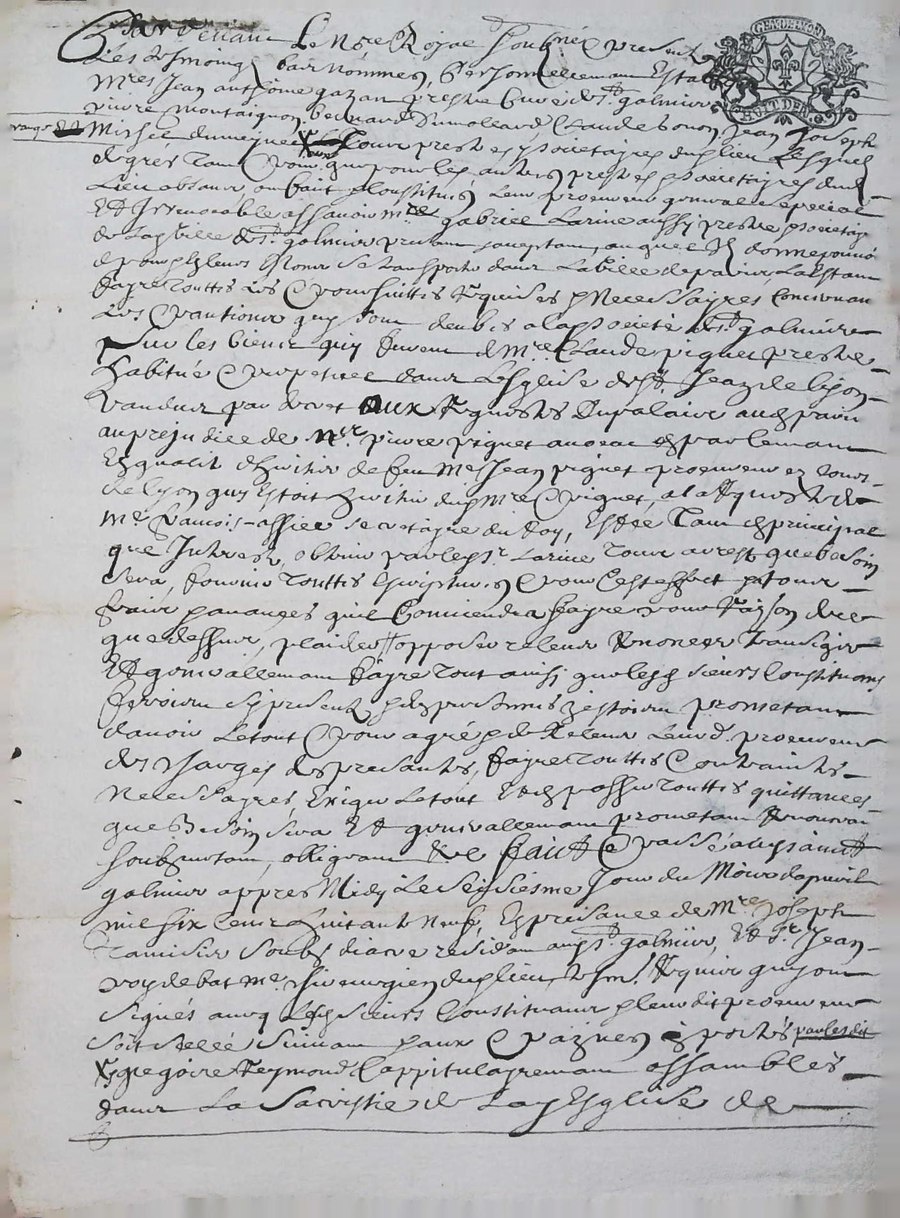 Par devant Le No.re Royal soubsigné presents
Les tesmoings bas nommés, personnellemant Estab
Mres Jean anthoine gazan prestre Curé de St galmier
pierre montaignon, bernard Dumollard Claude bonon Jean Joseph
Misset, dumeynec tous prestres sossietaires dud lieu Lesquels
de gres tant pour que pour les autres prestres sosietaires dud
Lieu absans ont fait & Constitué Leur procureur general & special
Et Irrevocable assavoir mre gabriel Larine aussy prestre sosietaire
de lad ville de St galmier presant acceptant, auquel Ils donne pouvoir
de pour & Leurs Noms se transporter dans La ville de paris, La Estant
fayre touttes Les poursuittes Requises & Necessayres Concernant
Les preantions quy sont deubes a la sosieté de St galmier
Sur les biens quy furent de Mre Claude piquet prestre
habitué & perpetuel dans L'Esglise de St Jean de lyon
Vandus par decret aux Requestes du palais aud paris
au prejudice de Mre pierre piquet avocat en parlemant
En qualité d'heritier de feu Me Jean piquet procureur es cours
de lyon quy Estoit heritier dud Mre piquet, a la Requeste de
Me francois assier secretayre du Roy, Et de Tant en principal
que Interest, obtenir par led sr Larine tout arrest que besoin
sera, fournir touttes Escriptures pour C'est effect & tour
faire panances qu'il Conviendra fayre pour Raison de ce
que dessus, plaider opposer eslire Renoncer transiger
Et generallemant fayre tout ainsy que lesd sieurs Constituans
feroient sy presents & en personnes y estoient prometant
d'avoir Le tout pour agreé & de Relever Leurd. procureur
des charges des presantes, fayre touttes Contraintes
Necessayres Exiger Le tout Et en passer touttes quittances
que Besoin sera Et generallemant prometant Renoncant
soubzmetant, obligeant &c fait & passé aud saint
galmier appres Midy Le seisiesme Jour du Mois d'apvril
mil six Cens huitante Neuf, En presance de Mre Joseph
Tamisier soubs diacre residant aud St galmier, Et Sr Jean
roy debat me Chirurgien dud lieu, tesm. Requis quy ont
signés avec Lesd sieurs Constituans & leurdit procureur
soit sellé suivant
X gregoire Reymond Cappitulayremant assembles
dans La Sacristie de Lad Esglise de